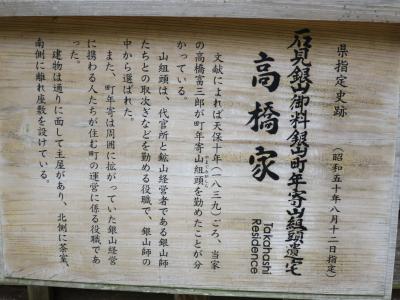 県指定史跡
(昭和五十年八月十二日指定)
石見銀山御料銀山町年寄山組頭遺宅
高橋家
Takahashi
Residence
文献によれば天保十年(一八三九)ごろ、当家
の高橋富三郎が町年寄山組頭を勤めたことが分
かっている。
山組頭は、代官所と鉱山経営者である銀山師
たちとの取次ぎなどを勤める役職で、銀山師の
中から選ばれた。
また、町年寄は周囲に拡がっていた銀山経営
に携わる人たちが住む町の運営に係る役職であ
った。
建物は通りに面して主屋があり、北側に茶室、
南側に離れ座敷を設けている。